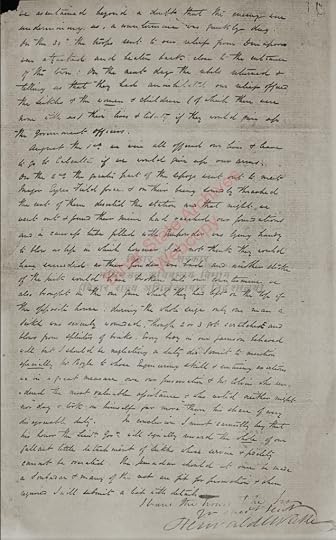 we ascertained beyond a doubt that the enemy were
undermining us, a countermine was quickly dug.
On the 30th the troops sent to our relief from Dinapore
were attacked and beaten back close to the entrance
of the town. On the next day the whole returned &
telling us that they had annihilated our relief offered
the Seikhs & the women & children (of which there were
none with us) their lives & liberty if they would give up
the Government officers.
August the 1st we were all offered our lives & leave
to go to Calcutta if we would give up our arms.
On the 2nd the greater part of the sepoys went out to meet
Major Eyre's Field force & on their being soundly thrashed
the rest of them deserted the station and that night we
went out & found their mine had reached our foundations
and a canvas tube filled with gunpowder was lying handy
to blow us up in which however I do not think they would
have succeeded as their powder was bad and another stroke
of the pick would have broken into our countermine, we
also brought in the gun which they had left on the top of
the opposite house. During the whole siege only one man a
Seikh was severely wounded, though 2 or 3 got scratches and
blows from splinters of bricks. Every body in our garrison behaved
well but I should be neglecting a duty did I omit to mention
specially Mr Boyle to whose Engineering skill & untiring exertions
we in a great measure owe our preservation & Mr Colvin who ren-
dered the most valuable assistance & who rested neither night
nor day & took on himself far more than his share of every
disagreeable duty. In conclusion I must earnestly beg that
his honor the Lieut Govr will signally reward the whole of our
gallant little detachment of Seikhs whose service & fidelity
cannot be overrated. The Jemadar should at once be made
a Soubadar & many of the rest are fit for promotion & when
required I will submit a list with details.
I have the honor